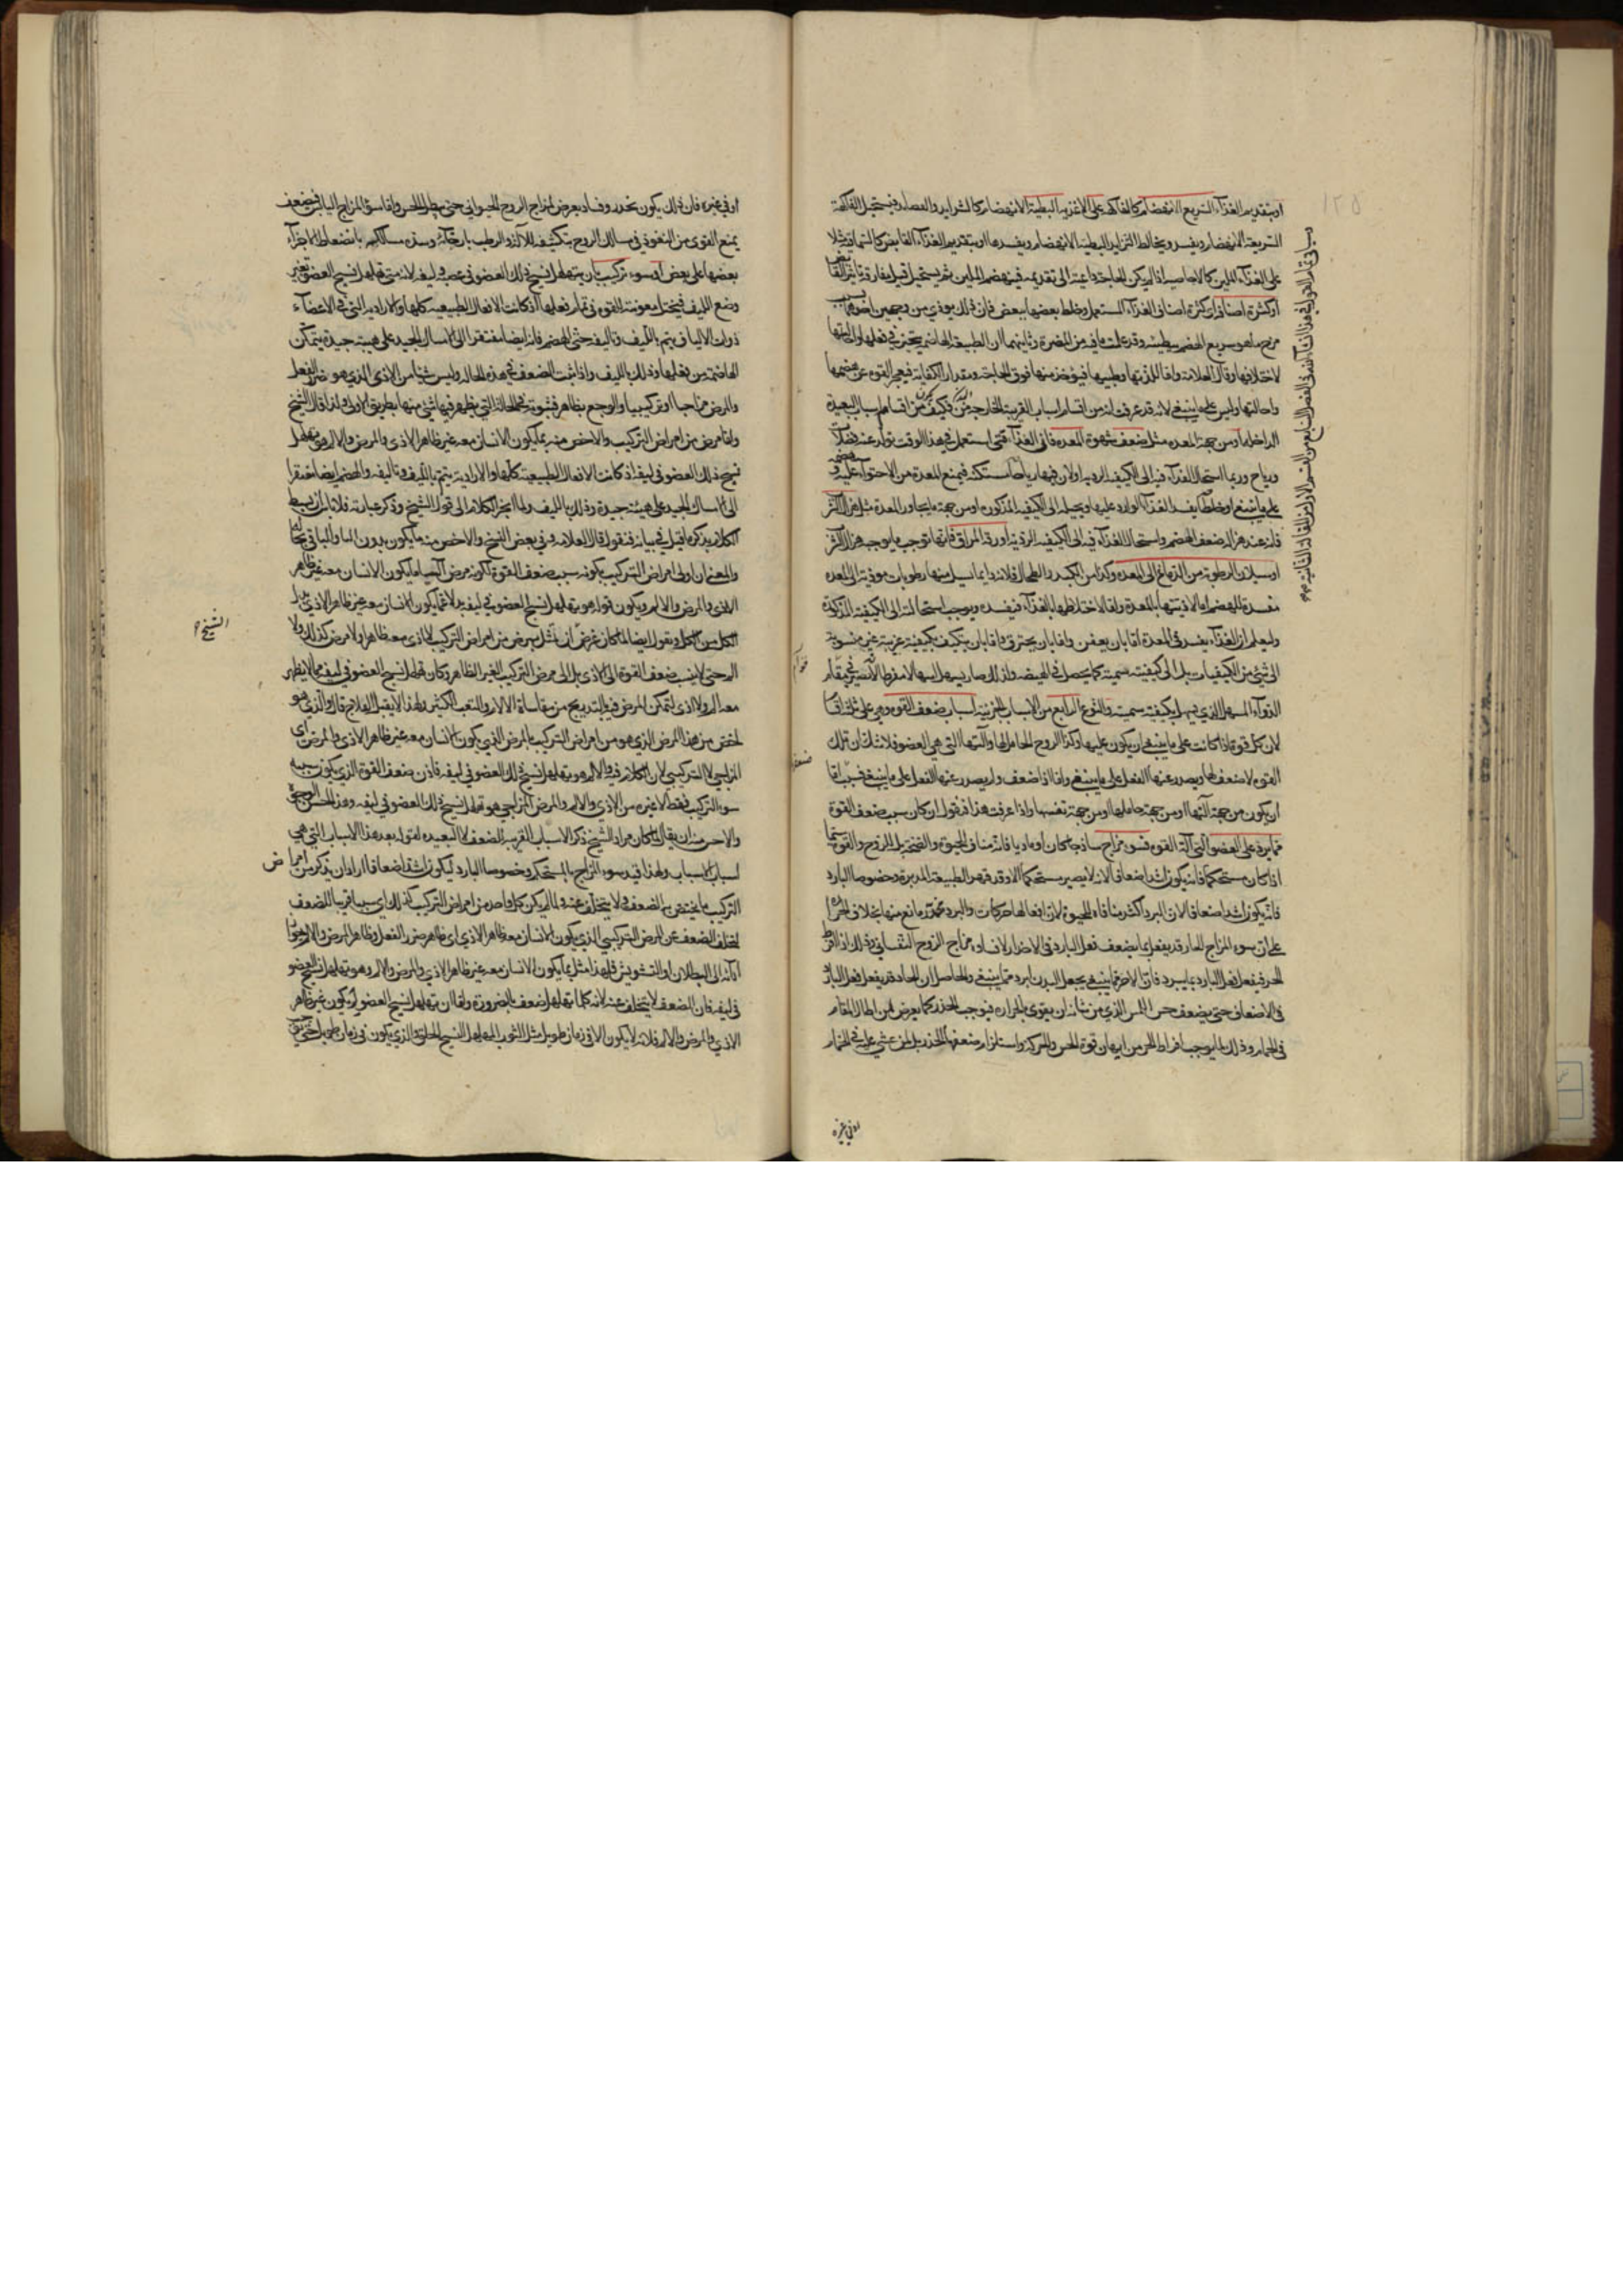 او بتقديم الغذاء السريع الانهضام كالفاكهة على الاغذية البطيئة الانهضام كالشرايد والفصلد فيستحيل الفاكهة
السريعة الانهضام ويفسد ويخالط الثرايد البطيئة الانهضام ويفسدها او بتقديم الغذاء القابض كالسماقية مثلا
على الغذاء الملين كالاجاصية اذا لم يكن للحاجة داعية الى تقديمه فينهضم الملين ثم يستحيل قبل مفارقة
او كثرة اصنافه اى كثرة اصناف الغذاء المستعمل وخلط بعضها ببعض فان ذلك يوذي من وجهين احدهما
مزج ما هو سريع الهضم ببطيئه وقد علمت ما فيه من المضرة وثانيهما ان الطبيعة الهاضمة يتحير في فعلها
لاختلافها وقال العلامة واما للذتها وطيبها فيؤخذ منها فوق الحاجة ومقدار الكفاية فيعجز القوة عن هضمها
واحالتها وليس على ما ينبغي لانه قد عرفت انه من اقسام اسباب القريبة الخارجية فكيف من اقسام اسباب البعيدة
الداخلة او من جهة المعدة مثل ضعف شهوة المعدة فان الغذاء متى استعمل في هذا الوقت تولد عنه فضلات
ورياح وربما استحال الغذاء فيه الى الكيفية الردية او لان فيها رياحا مستكنة فيمنع المعدة من الاحتواء عليه
على ما ينبغي او خلطا يفسد الغذاء الوارد عليها ويحيله الى الكيفية المذكورة او من جهة ما يجاور المعدة مثل هزال الثرب
فانه عند هزاله ضعف الهضم واستحال الغذاء فيه الى الكيفية الردية او رقة المراق فانها توجب ما يوجبه هزال الثرب
او سيلان الرطوبة من الدماغ الى المعدة وكذا من الكبد والطحال فلانه دايما يسيل منها رطوبات موذية الى المعدة
مفسدة للهضم اما لاذيتها بالمعدة واما لاختلاطها بالغذاء فيفسده ويوجب استحالته الى الكيفية المذكورة
وليعلم ان الغذاء يفسد في المعدة اما بان يعفن واما بان يحترق واما بان يتكيف بكيفية غريبة غير منسوبة
الى شيء من الكيفيات بل الى كيفية سمية كما يحصل في الهيضة ولذلك صار يسهل اسهالا مفرطا لانه يصير في مقام
الدواء المسهل الذي يسهل بكيفية سمية والنوع الرابع من الاسباب الجزئية اسباب ضعف القوة وهي على ثلثة اقسام
لان كل قوة اذا كانت على ما ينبغي ان يكون عليها وكذا الروح الحامل لها وآلتها التي هي العضو فلا شك ان تلك
القوة لا ضعف لها ويصدر عنها الفعل على ما ينبغي واما اذا ضعف ولم يصدر عنها الفعل على ما ينبغي فسببه اما
ان يكون من جهة آلتها او من جهة حاملها او من جهة نفسها واذا عرفت هذا فنقول ان كان سبب ضعف القوة
مما يرد على العضو التي آلة القوة فسوء مزاج ساذجا كان او ماديا فانه مناف للحيوة والصحة بل للروح والقوة سيما
اذا كان مستحكما فانه يكون اشد اضعافا لانه لا يصير مستحكما الا وقد قهر الطبيعة المدبرة وخصوصا البارد
فانه يكون اشد اضعافا لان البرد اكثر منافاة للحيوة لان افعالها حركات والبرد مخدر مانع منها بخلاف الحرارة
على ان سوء المزاج الحار قد يفعل بما يضعف فعل البارد في الاضرار لافساده مزاج الروح النفساني وذلك اذا افرط
الحر فيفعل فعل البارد بما يبرد فان الاحر مما ينبغي يجعل البدن ابرد مما ينبغي والحاصل ان الحار قد يفعل فعل البارد
في الاضعاف حتى يضعف حس اللمس الذي من شانه ان يقوى بالحرارة فيوجب الخدر كما يعرض لمن اطال المقام
في الحمام وذلك لما يوجب افراط الحر من ايهان قوة الحس والحركة واستلزام ضعفها للخدر بل لمن غشي عليه في الحمام
سبب في تمام الهواء في هذا
او في غيره
او في غيره فان ذلك يكون بخدر وفساد يعرض لمزاج الروح الحيواني حتى يبطل الحس واما سوء المزاج اليابس فيضعف
يمنع القوى من النفوذ في مسالك الروح بتكثيفه للآلة والرطب بارخائه وسده مسالكه بانضغاط الاجزاء
بعضها على بعض او سوء تركيب بان يتهلهل نسج ذلك العضو في عصبه وليفه لانه متى تهلهل نسج العضو تغير
وضع الليف فيختل معونته للقوة في تمام فعلها اذ كانت الافعال الطبيعية كلها والارادية التي في الاعضاء
ذوات الالياف يتم بالليف وتاليفه حتى الهضم فانه ايضا مفتقر الى الامساك الجيد على هيئة جيدة يتمكن
الهاضمة من فعلها وذلك بالليف واذا ثبت الضعف في هذه الحالة وليس شئ من الاذى الذي هو ضرر الفعل
والمرض مزاجيا او تركيبيا والوجع بظاهر فثبوته في الحالة التي يظهر فيها شئ منها بطريق الاولى ولذا قال الشيخ
واما مرض من امراض التركيب والاخص منه بما يكون الانسان معه غير ظاهر الاذى والمرض والالم هو تهلهل
نسج ذلك العضو في ليفه اذ كانت الافعال الطبيعية كلها والارادية يتم بالليف وتاليفه والهضم ايضا مفتقر
الى الامساك الجيد على هيئة جيدة وذلك بالليف ولما انجر الكلام الى قول الشيخ وذكر عبارته فلا باس ان يبسط
الكلام بذكر ما قيل في بيانه فنقول قال العلامة وفي بعض النسخ والاخص منه ما يكون بدون الباء والباقي بحاله
والمعنى ان اولى امراض التركيب بكونه سبب ضعف القوة لكونه مرض آليا ما يكون الانسان معه غير ظاهر
الاذى والمرض والالم ويكون قوله هو تهلهل نسج العضو في ليفه بدلا عما يكون الانسان معه غير ظاهر الاذى بدل
الكل من الكل ونقول ايضا لما كان غرضه ان يمثل بمرض من امراض التركيب لا اذى معه ظاهرا ولا مرض كذلك ولا
الم حتى لا ينسب ضعف القوة الى الاذى بل الى مرض التركيب الغير الظاهر وكان تهلهل نسج العضو في ليفه مما لا يظهر
معه الم ولا اذى لتمكن المرض فيه بالتدريج من مقاساة الآلام والتعب الكثير ولهذا لا يقبل العلاج قال والذي هو
اخص من هذا المرض الذي هو من امراض التركيب بالمرض الذي يكون الانسان معه غير ظاهر الاذى والمرض اى
المزاجي لا التركيبي لان الكلام فيه والالم هو تهلهل نسج ذلك العضو في ليفه فاذن ضعف القوة الذي يكون سببه
سوء التركيب فقط لا غيره من الاذى والالم والمرض المزاجي هو تهلهل نسج ذلك العضو في ليفه وهذا احسن الوجوه
والاحسن منه ان يقال لما كان مراد الشيخ ذكر الاسباب القريبة للضعف لا البعيدة لقوله بعد هذا الاسباب التي هي
اسباب الاسباب ولهذا قيد سوء المزاج بالمستحكم وخصوصا البارد ليكون اشد اضعافا اراد ان يذكر من امراض
التركيب ما يختص به الضعف ولا يتخلف عنه ولما لم يكن كل واحد من امراض التركيب كذلك اى سببا قريبا للضعف
لتخلف الضعف عن المرض التركيبي الذي يكون الانسان معه ظاهر الاذى اى ظاهر ضرر الفعل وظاهر المرض والالم
اما الى البطلان او التشويش فلهذا مثل بما يكون الانسان معه غير ظاهر الاذى والمرض والالم وهو تهلهل نسج العضو
في ليفه فان الضعف لا يتخلف عنه لانه كلما تهلهل ضعف بالضرورة واما ان تهلهل نسج العضو يكون غير ظاهر
الاذى والمرض والالم فلانه لا يكون الا في زمان طويل مثل الثوب المهلهل النسج الخلق الذي يكون في زمان طويل
الشيخ